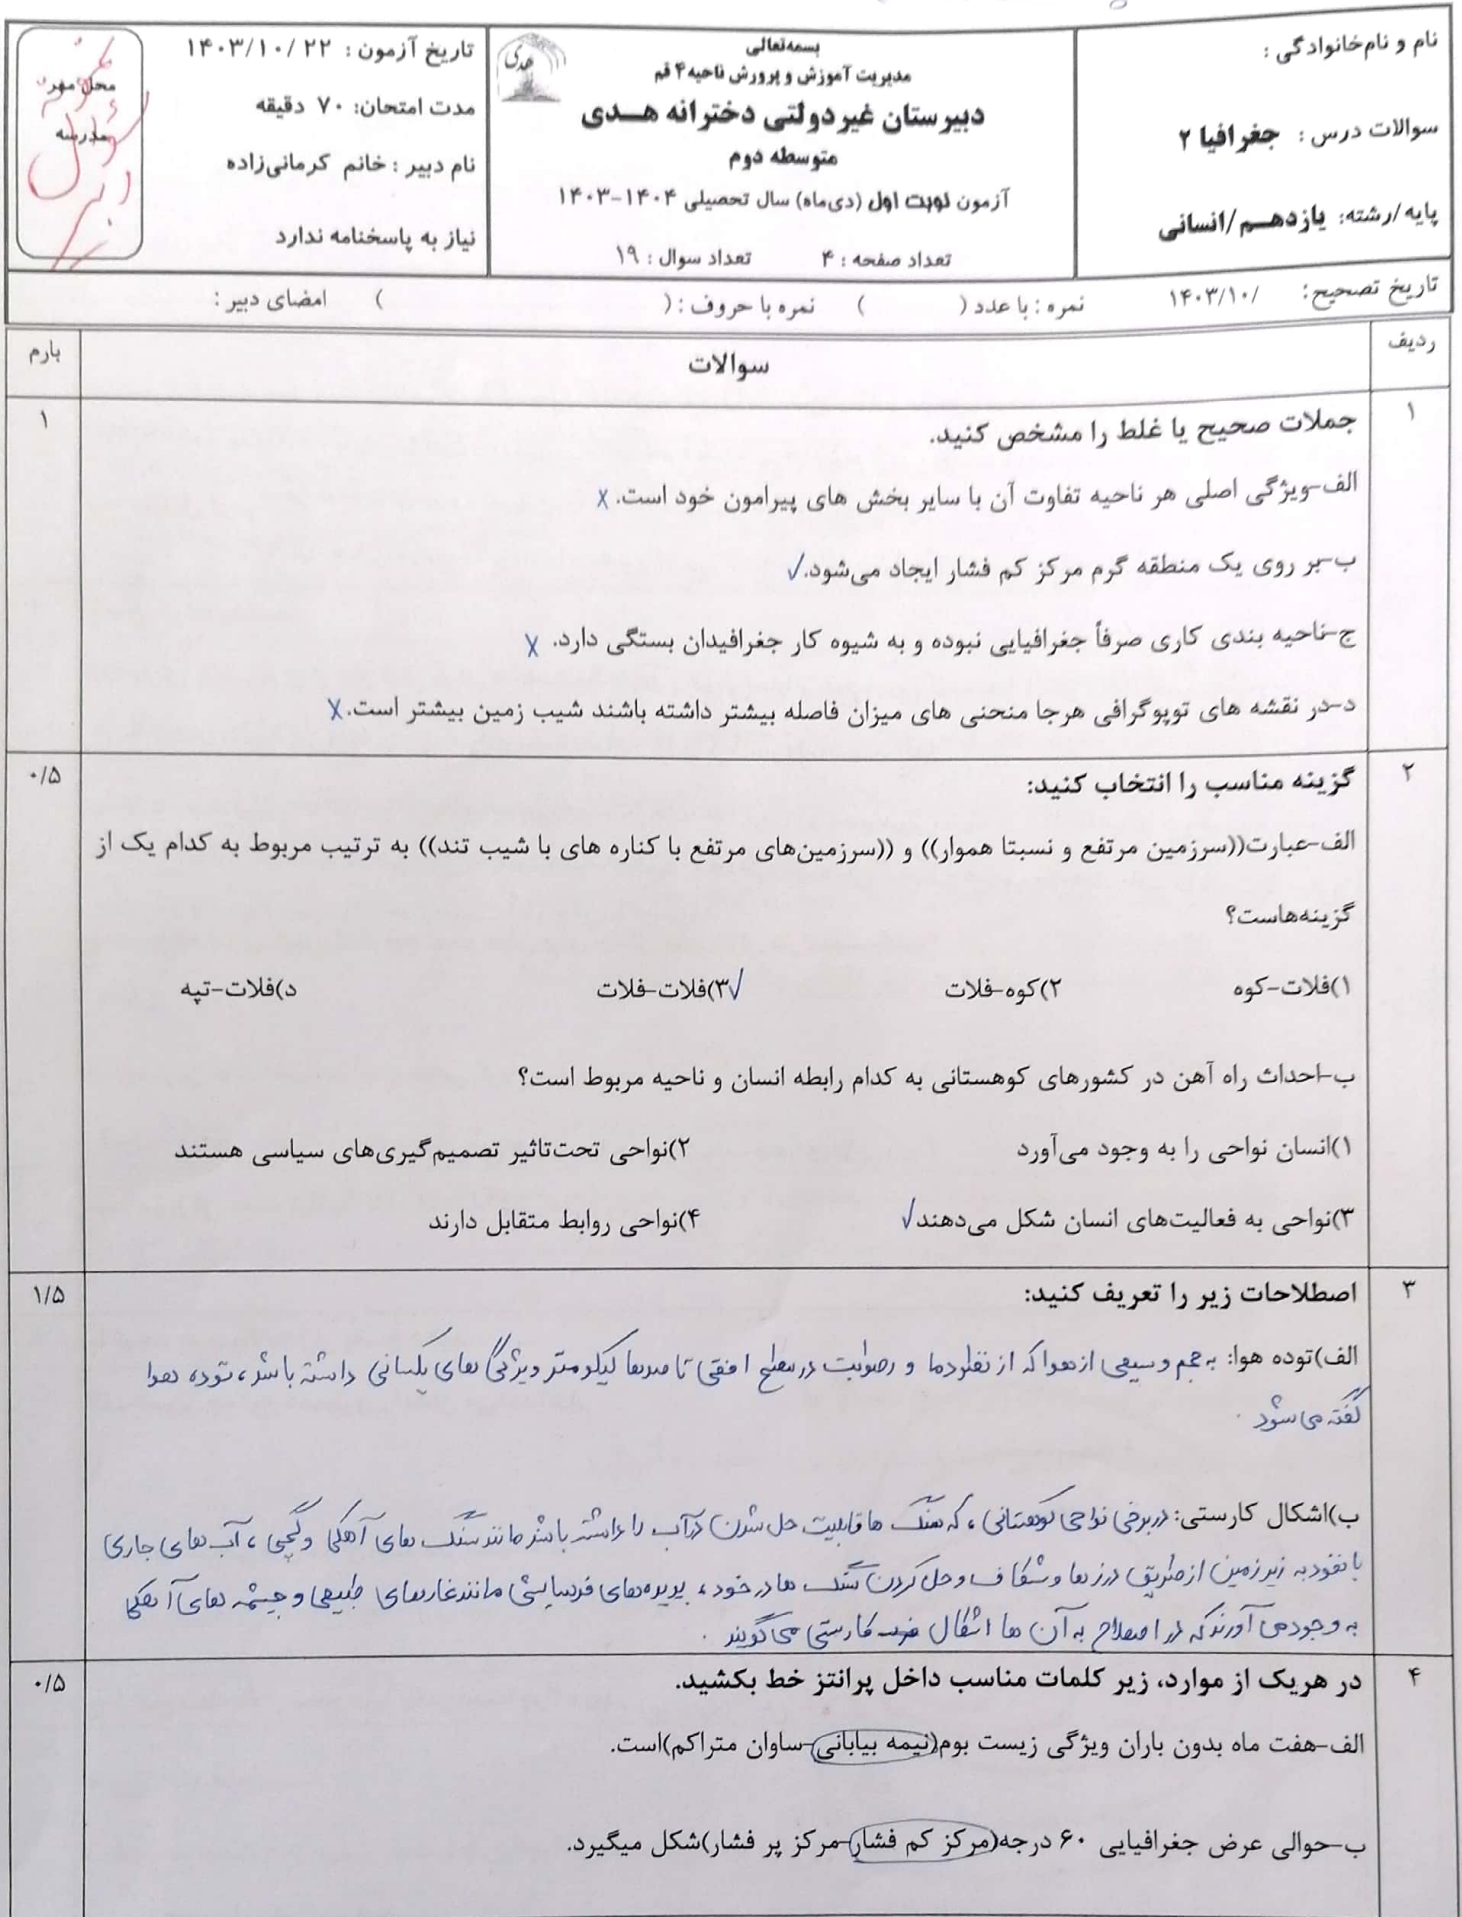 نام و نام‌خانوادگی :
سوالات درس : جغرافیا ۲
پایه/رشته: یازدهم/انسانی
بسمه‌تعالی
مدیریت آموزش و پرورش ناحیه ۴ قم
دبیرستان غیردولتی دخترانه هدی
متوسطه دوم
آزمون نوبت اول (دی‌ماه) سال تحصیلی ۱۴۰۴-۱۴۰۳
تعداد صفحه : ۴ تعداد سوال : ۱۹
هدی
تاریخ آزمون : ۲۲ /۱۴۰۳/۱۰
مدت امتحان: ۷۰ دقیقه
نام دبیر : خانم کرمانی‌زاده
نیاز به پاسخنامه ندارد
محل مهر
مدرسه
تاریخ تصحیح: /۱۴۰۳/۱۰ نمره : با عدد ( ) نمره با حروف : ( ) امضای دبیر :
ردیف سوالات بارم
۱ جملات صحیح یا غلط را مشخص کنید. ۱
الف-ویژگی اصلی هر ناحیه تفاوت آن با سایر بخش های پیرامون خود است. x
ب-بر روی یک منطقه گرم مرکز کم فشار ایجاد می‌شود. ✓
ج-ناحیه بندی کاری صرفاً جغرافیایی نبوده و به شیوه کار جغرافیدان بستگی دارد. x
د-در نقشه های توپوگرافی هرجا منحنی های میزان فاصله بیشتر داشته باشند شیب زمین بیشتر است. x
۲ گزینه مناسب را انتخاب کنید: ۰/۵
الف-عبارت((سرزمین مرتفع و نسبتا هموار)) و ((سرزمین‌های مرتفع با کناره های با شیب تند)) به ترتیب مربوط به کدام یک از
گزینه‌هاست؟
۱)فلات-کوه ۲)کوه-فلات ✓۳)فلات-فلات د)فلات-تپه
ب-احداث راه آهن در کشورهای کوهستانی به کدام رابطه انسان و ناحیه مربوط است؟
۱)انسان نواحی را به وجود می‌آورد ۲)نواحی تحت‌تاثیر تصمیم‌گیری‌های سیاسی هستند
۳)نواحی به فعالیت‌های انسان شکل می‌دهند ✓ ۴)نواحی روابط متقابل دارند
۳ اصطلاحات زیر را تعریف کنید: ۱/۵
الف)توده هوا: به حجم وسیعی از هوا که از نظر دما و رطوبت در سطح افقی تا صدها کیلومتر ویژگی های یکسانی داشته باشد، توده هوا
گفته می شود .
ب)اشکال کارستی: در برخی نواحی کوهستانی ، که سنگ ها قابلیت حل شدن در آب را داشته باشد مانند سنگ های آهکی و گچی ، آب های جاری
با نفوذ به زیر زمین از طریق درز ها و شکاف و حل کردن سنگ ها در خود ، پدیده‌های فرسایشی مانند غارهای طبیعی و چشمه های آهکی
به وجود می آورند که در اصطلاح به آن ها اشکال کارستی می گویند .
۴ در هریک از موارد، زیر کلمات مناسب داخل پرانتز خط بکشید. ۰/۵
الف-هفت ماه بدون باران ویژگی زیست بوم(نیمه بیابانی-ساوان متراکم)است.
ب-حوالی عرض جغرافیایی ۶۰ درجه(مرکز کم فشار-مرکز پر فشار)شکل میگیرد.